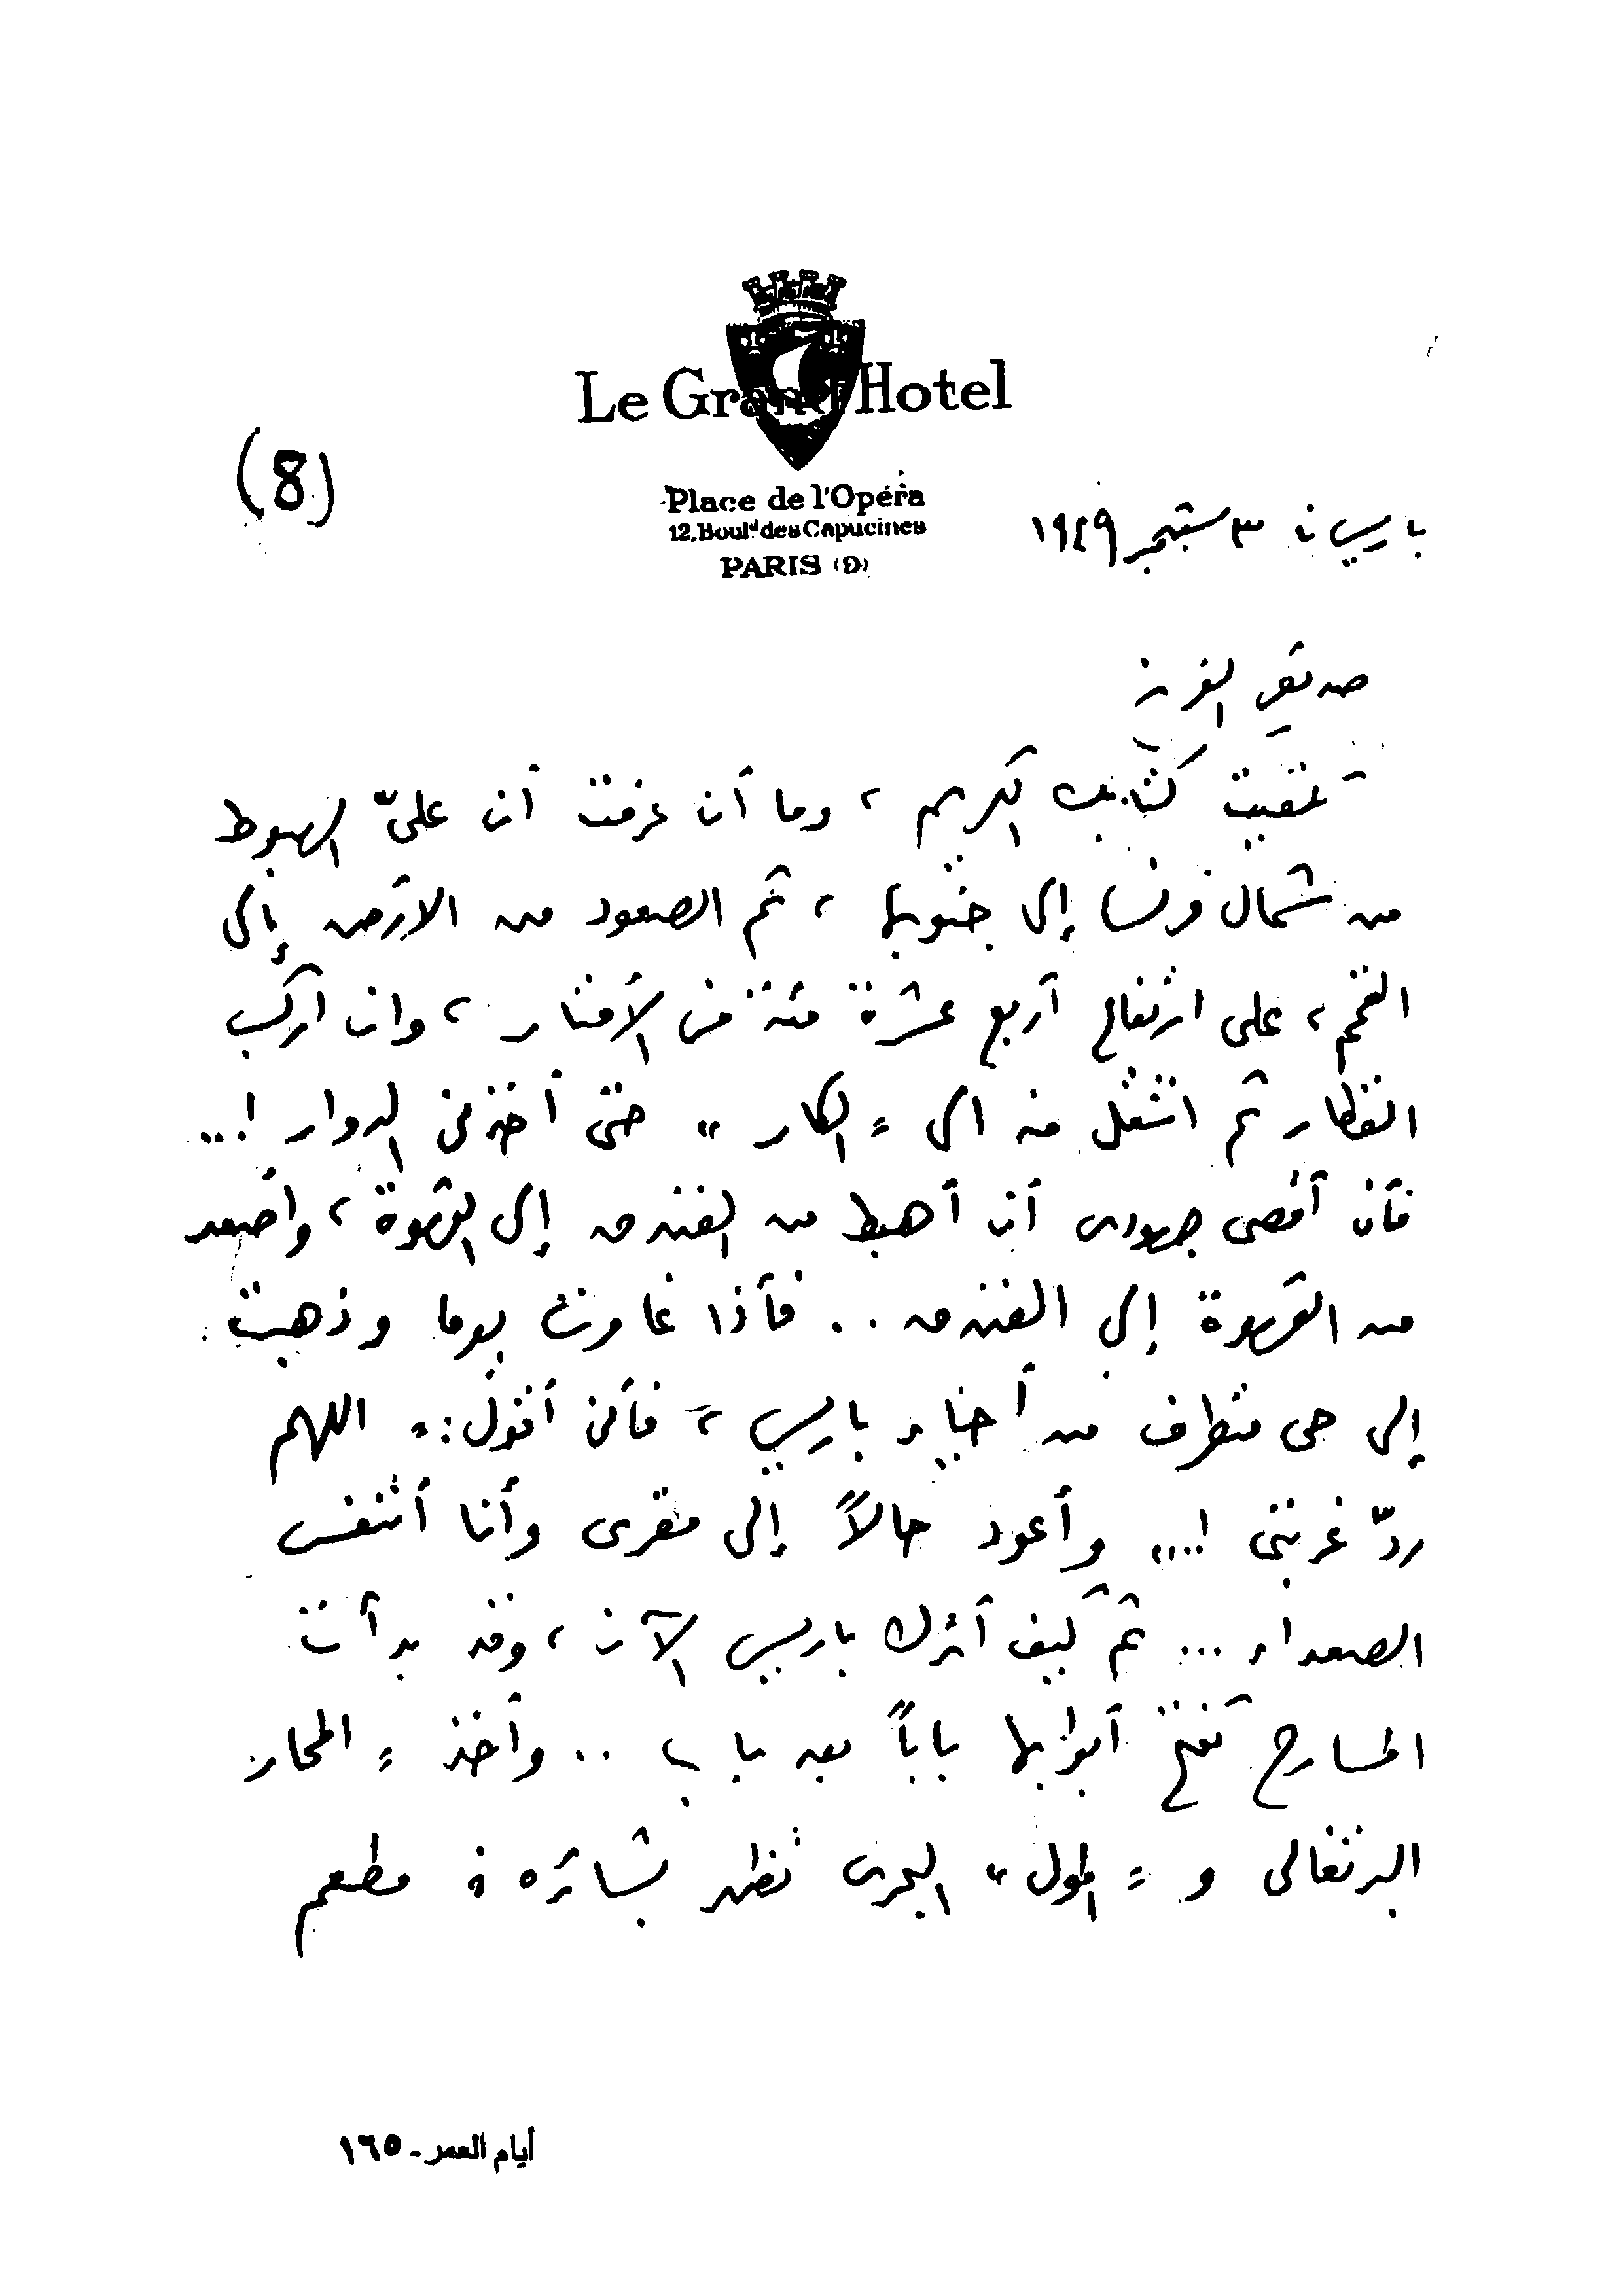 Le Grand Hotel
(8)
Place de l'Opéra
12, Boulᵈ des Capucines
PARIS (9)
باريس في ٣ سبتمبر ١٩٤٩
صديقي العزيز
تلقيت كتابك الكريم ، وما أن عرفت أن علىّ الهبوط
من شمال فرنسا إلى جنوبها ، ثم الصعود من الأرض إلى
القمم ، على ارتفاع أربع عشرة مئة من الأمتار ، وان اركب
القطار ثم انتقل منه الى « الكار » حتى أخذني الدوار !...
فأن أقصى جهودى أن أهبط من الفندق إلى القهوة ، وأصعد
من القهوة إلى الفندق .. فأذا غامرت يوما وذهبت
إلى حى متطرف من أحياء باريس ، فأنى أقول : « اللهم
ردّ غربتى !.. » وأعود حالاً إلى مقرى وأنا أتنفس
الصعداء ... ثم كيف أترك باريس الآن ، وقد بدأت
المسارح تفتح أبوابها باباً بعد باب .. وأخذ « المحار
البرتغالى و « المول » البحرى تظهر بشائره في مطعم
أيام العمر - ١٦٥